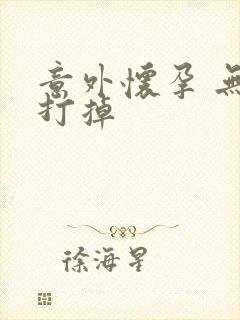 意外懷孕 無
打掉
徐海星